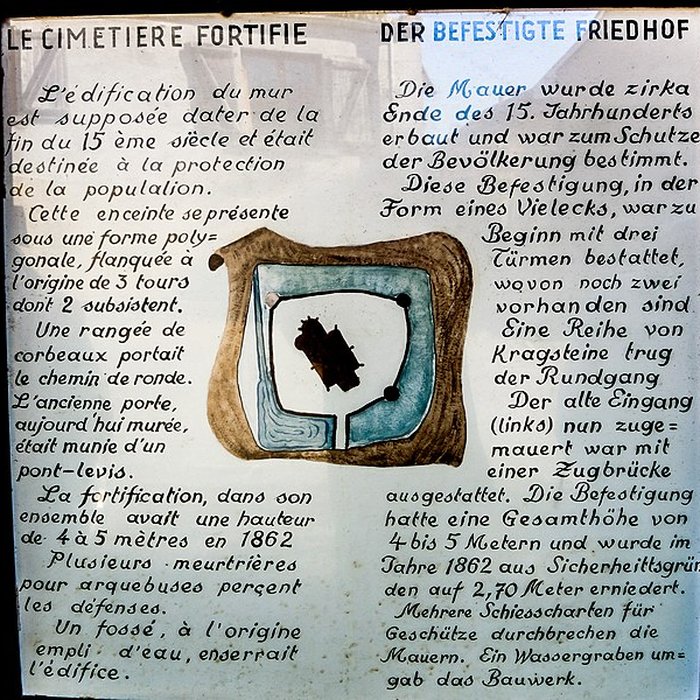 LE CIMETIERE FORTIFIE
L'édification du mur
est supposée dater de la
fin du 15 ème siècle et était
destinée à la protection
de la population.
Cette enceinte se présente
sous une forme poly=
gonale, flanquée à
l'origine de 3 tours
dont 2 subsistent.
Une rangée de
corbeaux portait
le chemin de ronde.
L'ancienne porte,
aujourd'hui murée,
était munie d'un
pont-levis.
La fortification, dans son
ensemble avait une hauteur
de 4 à 5 mètres en 1862
Plusieurs meurtrières
pour arquebuses perçent
les défenses.
Un fossé, à l'origine
empli d'eau, enserrait
l'édifice.
DER BEFESTIGTE FRIEDHOF
Die Mauer wurde zirka
Ende des 15. Jahrhunderts
erbaut und war zum Schutze
der Bevölkerung bestimmt.
Diese Befestigung, in der
Form eines Vielecks, war zu
Beginn mit drei
Türmen bestattet,
wovon noch zwei
vorhanden sind
Eine Reihe von
Kragsteine trug
der Rundgang
Der alte Eingang
(links) nun zuge=
mauert war mit
einer Zugbrücke
ausgestattet. Die Befestigung
hatte eine Gesamthöhe von
4 bis 5 Metern und wurde im
Jahre 1862 aus Sicherheittsgrün
den auf 2,70 Meter erniedert.
Mehrere Schiesscharten für
Geschütze durchbrechen die
Mauern. Ein Wassergraben um=
gab das Bauwerk.